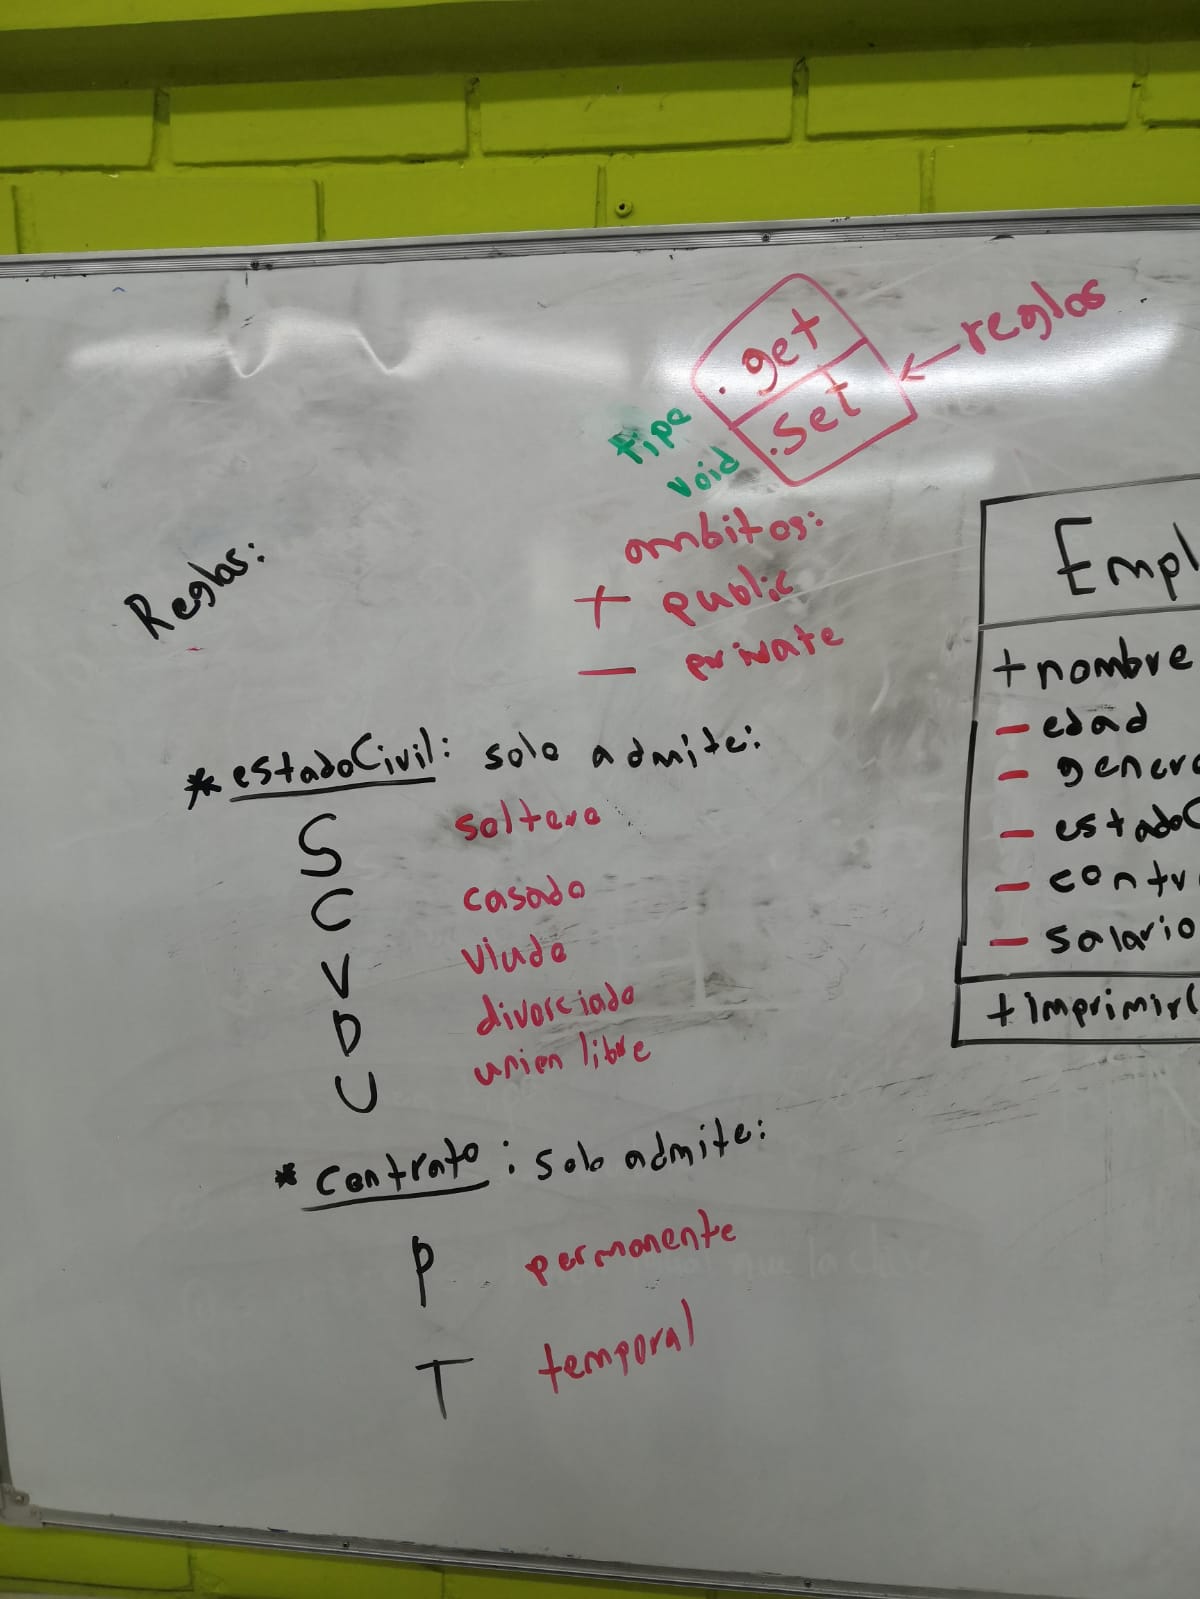 .get
.set
← reglas
tipo
void
ambitos:
+ public
- private
Reglas:
* estadoCivil: solo admite:
S soltero
C casado
V viudo
D divorciado
U union libre
* contrato: solo admite:
P permanente
T temporal
Empl
+ nombre
- edad
- genero
- estadoC
- contr
- salario
+ imprimir(